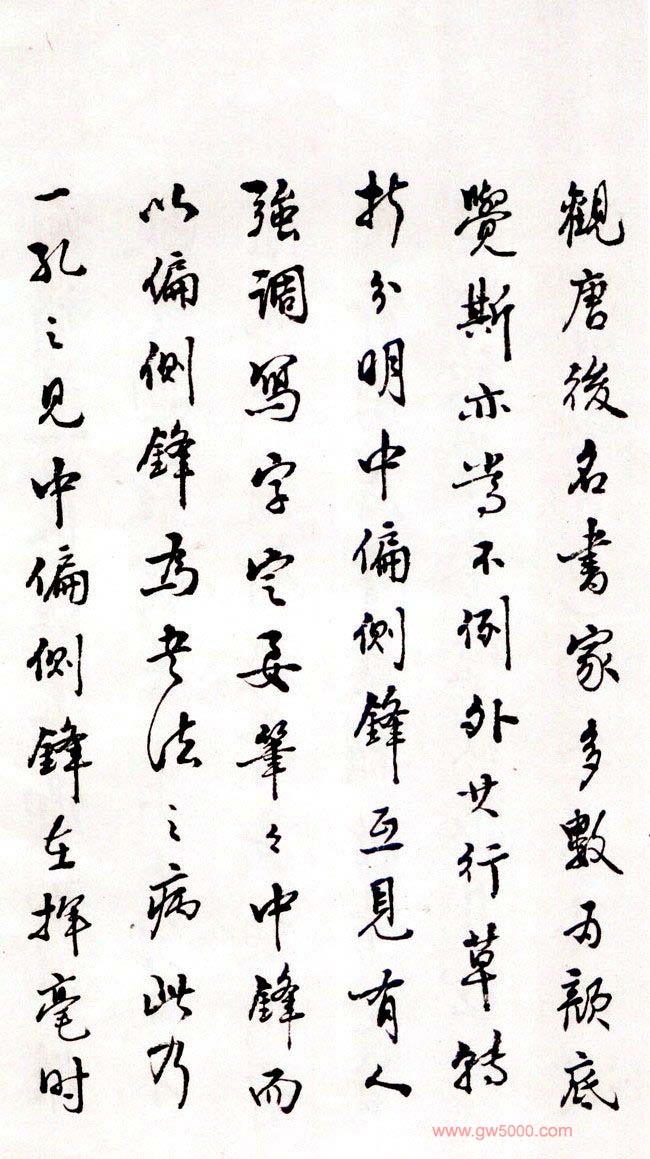 觀唐後名書家多數為顏底
覺斯亦當不例外其行草轉
折分明中偏側鋒互見有人
強調寫字定要筆々中鋒而
以偏側鋒為書法之病此乃
一孔之見中偏側鋒在揮毫时
www.gw5000.com